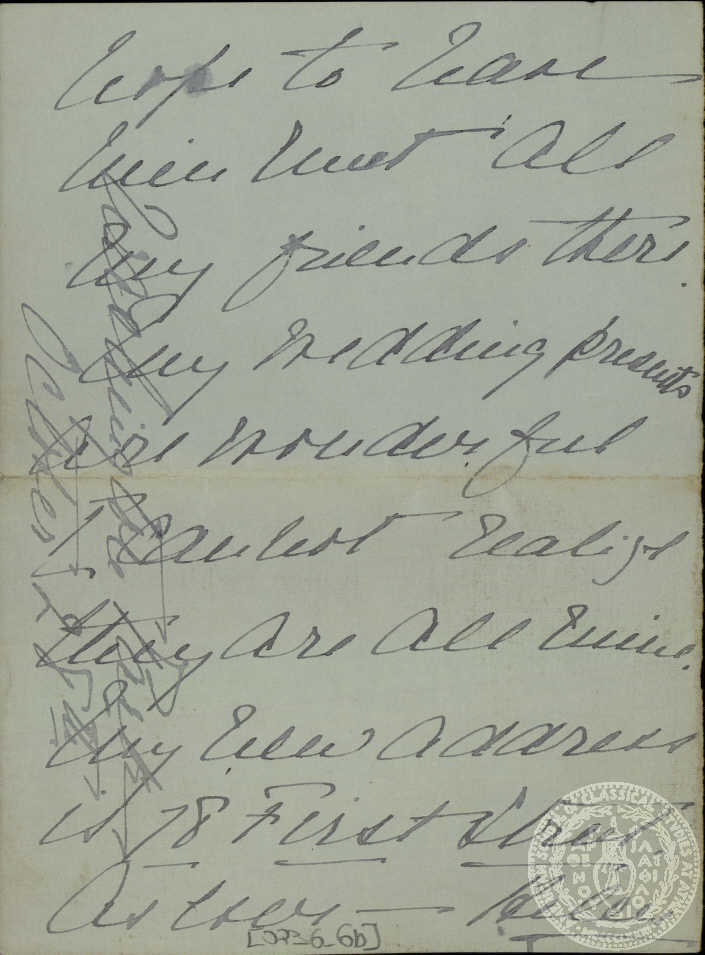 hope to have
him meet all
my friends there.
My wedding presents
are wonderful
I cannot realize
they are all mine.
My new address
is 78 First Street
As ever — Helen
October 25th
[073_6_6b]